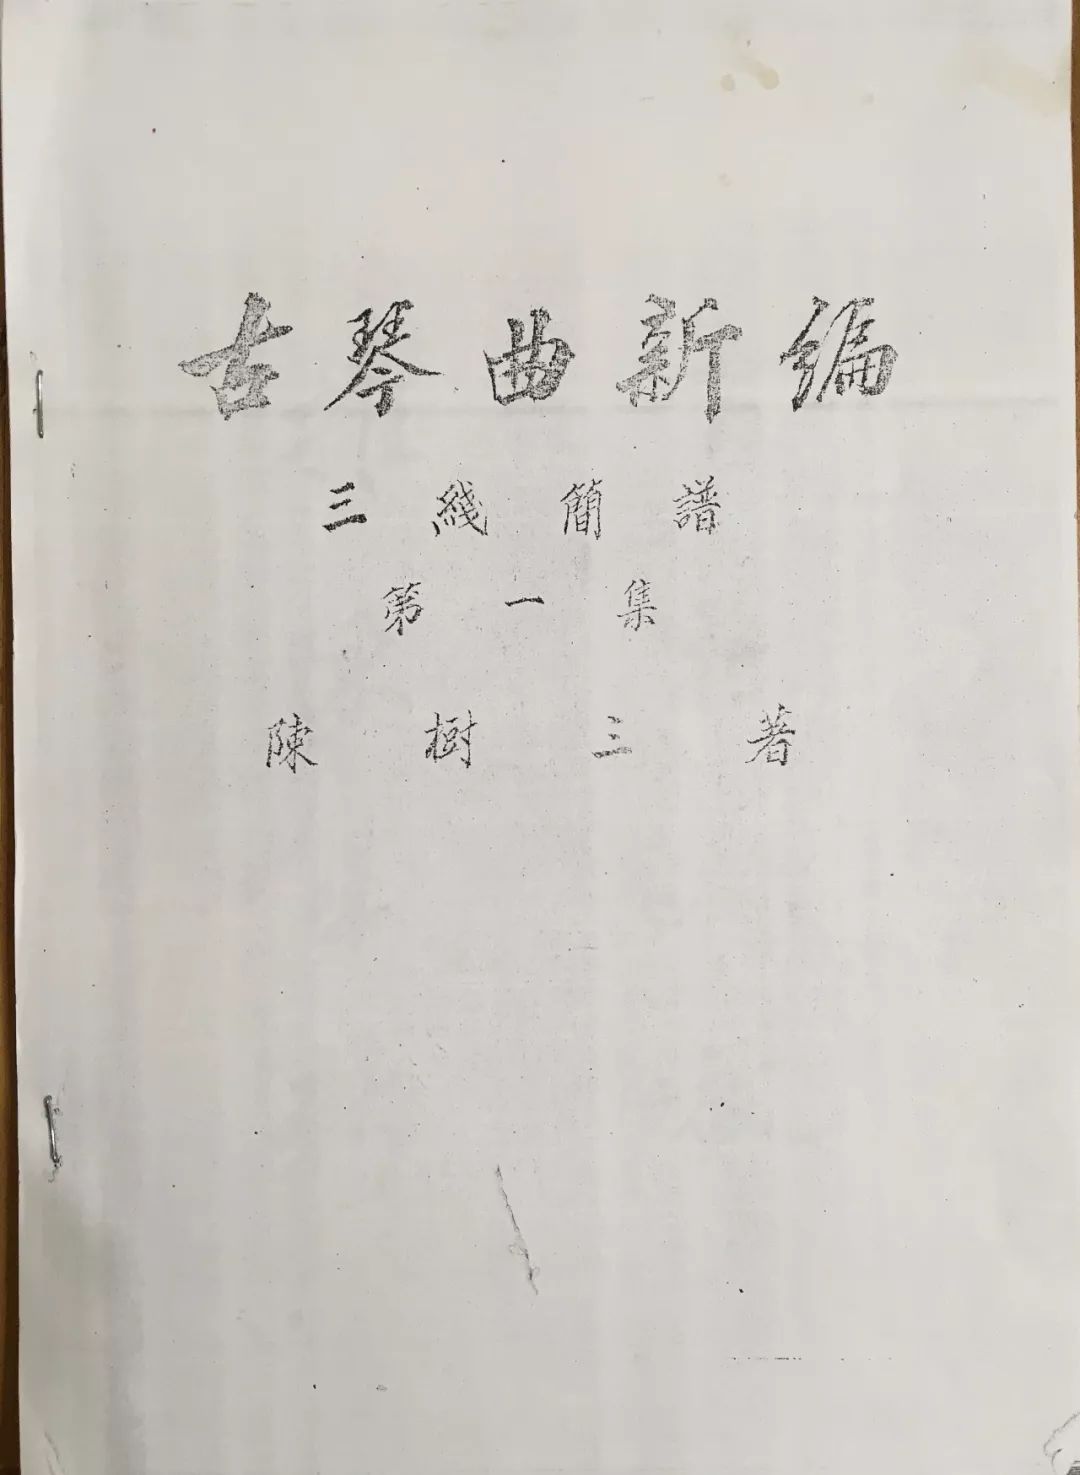 古琴曲新编
三綫簡譜
第一集
陳樹三著